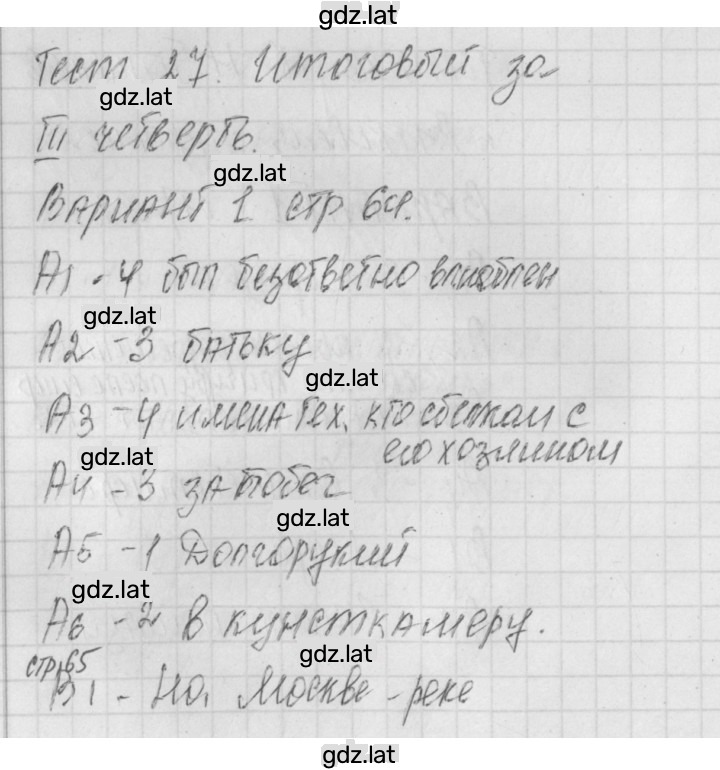 gdz.lat
Тест 27. Итоговый за
gdz.lat
III четверть.
gdz.lat
Вариант 1 стр 64.
А1 - 4 был безответно влюблен
gdz.lat
А2 - 3 батьку
gdz.lat
А3 - 4 имена тех, кто сбежал с
его хозяином
gdz.lat
А4 - 3 за побег
gdz.lat
А5 - 1 Долгорукий
gdz.lat
А6 - 2 в кунсткамеру.
gdz.lat
стр 65
В1 - На, Москве - реке
gdz.lat